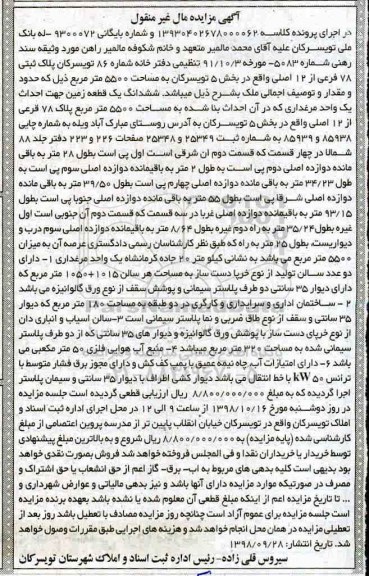 آگهی مزایده مال غیر منقول
در اجرای پرونده کلاسه ۱۳۹۳۰۴۰۲۶۷۸۰۰۰۰۶۲ و شماره بایگانی ۹۳۰۰۰۷۲ -له بانک
ملی تویسرکان علیه آقای محمد مالمیر متعهد و خانم شکوفه مالمیر راهن مورد وثیقه سند
رهنی شماره ۵۰۸۳-مورخه ۹۱/۱۰/۳ تنظیمی دفتر خانه شماره ۸۶ تویسرکان پلاک ثبتی
۷۸ فرعی از ۱۲ اصلی واقع در بخش ۵ تویسرکان به مساحت ۵۵۰۰ متر مربع ذیل که حدود
و مقدار و توصیف اجمالی ملک بشرح ذیل میباشد. ششدانگ یک قطعه زمین جهت احداث
یک واحد مرغداری که در آن احداث بنا شده به مساحت ۵۵۰۰ متر مربع پلاک ۷۸ فرعی
از ۱۲ اصلی واقع در بخش ۵ تویسرکان به آدرس روستای مبارک آباد ویله به شماره چاپی
۸۵۹۳۸ و ۸۵۹۳۹ به شماره ثبت ۲۵۳۴۹ و ۲۵۳۴۸ صفحات ۲۲۶ و ۲۲۳ دفتر جلد ۸۸
شمالا در چهار قسمت که قسمت دوم آن شرقی است اول پی است بطول ۲۸ متر به باقی
مانده دوازده اصلی دوم پی است به طول ۲ متر به باقیمانده دوازده اصلی سوم پی است به
طول ۳۴/۲۳ متر به باقی مانده دوازده اصلی چهارم پی است بطول ۳۹/۵۰ متر به باقی مانده
دوازده اصلی شرقا پی است بطول ۵۵ متر به باقی مانده دوازده اصلی جنوبا پی است بطول
۹۳/۱۵ متر به باقیمانده دوازده اصلی غربا در سه قسمت که قسمت دوم آن جنوبی است اول
غیره بطول ۳۴/۲۵ متر به راه دوم غیره بطول ۸/۶۴ متر به باقیمانده دوازده اصلی سوم درب و
دیواریست، بطول ۲۵ متر به راه که طبق نظر کارشناس رسمی دادگستری عرصه آن به میزان
۵۵۰۰ متر مربع می باشد به نشانی کیلو متر ۲۰ جاده کرمانشاه یک واحد مرغداری ۱- دارای
دو عدد سالن تولید از نوع خرپا دست ساز به مساحت هر سالن ۱۰۱۵+۱۰۵۰ متر مربع که
دارای دیوار ۳۵ سانتی دو طرف پلاستر سیمانی و پوشش سقف از نوع ورق گالوانیزه می باشد
۲ - ساختمان اداری و سرایداری و کارگری در دو طبقه به مساحت ۱۸۰ متر مربع که دیوار
۳۵ سانتی و سقف از نوع طاق ضربی و نما پلاستر سیمانی است ۳-سالن آسیاب و انباری دان
از نوع خرپای دست ساز با پوشش ورق گالوانیزه و دیوار های ۳۵ سانتی که از دو طرف پلاستر
سیمانی شده به مساحت ۳۲۰ متر مربع میباشد ۴- منبع آب هوایی فلزی ۵۰ متر مکعبی می
باشد ۶- دارای امتیازات آب چاه نیمه عمیق با پمپ کف کش و دارای مجوز برق فشار متوسط با
ترانس ۵۰ kW با خط انتقال می باشد دیوار کشی اطراف با دیوار ۳۵ سانتی و سیمان پلاستر
اجرا گردیده که به مبلغ ۸/۸۰۰/۰۰۰/۰۰۰ ریال ارزیابی قطعی گردیده است جلسه مزایده
در روز دوشنبه مورخ ۱۳۹۸/۱۰/۱۶ از ساعت ۹ الی ۱۲ در محل اجرای اداره ثبت اسناد و
املاک تویسرکان واقع در تویسرکان خیابان انقلاب پایین تر از مدرسه پروین اعتصامی از مبلغ
کارشناسی شده (پایه مزایده) به ۸/۸۰۰/۰۰۰/۰۰۰ ریال شروع و به بالاترین مبلغ پیشنهادی
توسط خریدار یا خریداران نقدا و فی المجلس فروخته خواهد شد فروش بصورت نقدی خواهد
بود بدیهی است کلیه بدهی های مربوط به آب- برق- گاز اعم از حق انشعاب یا حق اشتراک و
مصرف در صورتیکه موارد مزایده دارای آنها باشد و نیز بدهی مالیاتی و عوارض شهرداری و
... تا تاریخ مزایده اعم از اینکه مبلغ قطعی آن معلوم شده یا نشده باشد بعهده برنده مزایده
است جلسه مزایده برای عموم آزاد است چنانچه روز مزایده مصادف با تعطیل باشد روز بعد از
تعطیلی مزایده در همان محل انجام خواهد شد و هزینه های اجرایی طبق مقررات وصول خواهد
شد. تاریخ انتشار: ۱۳۹۸/۰۹/۲۸
سیروس قلی زاده-رئیس اداره ثبت اسناد و املاک شهرستان تویسرکان